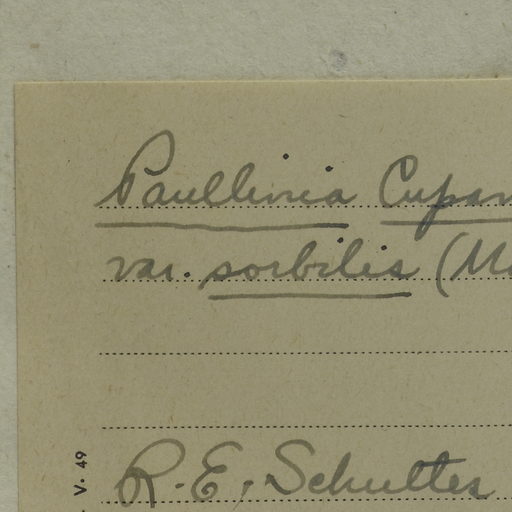 Paullinia Cupan
var. sorbilis (Ma
R. E. Schultes
V. 49